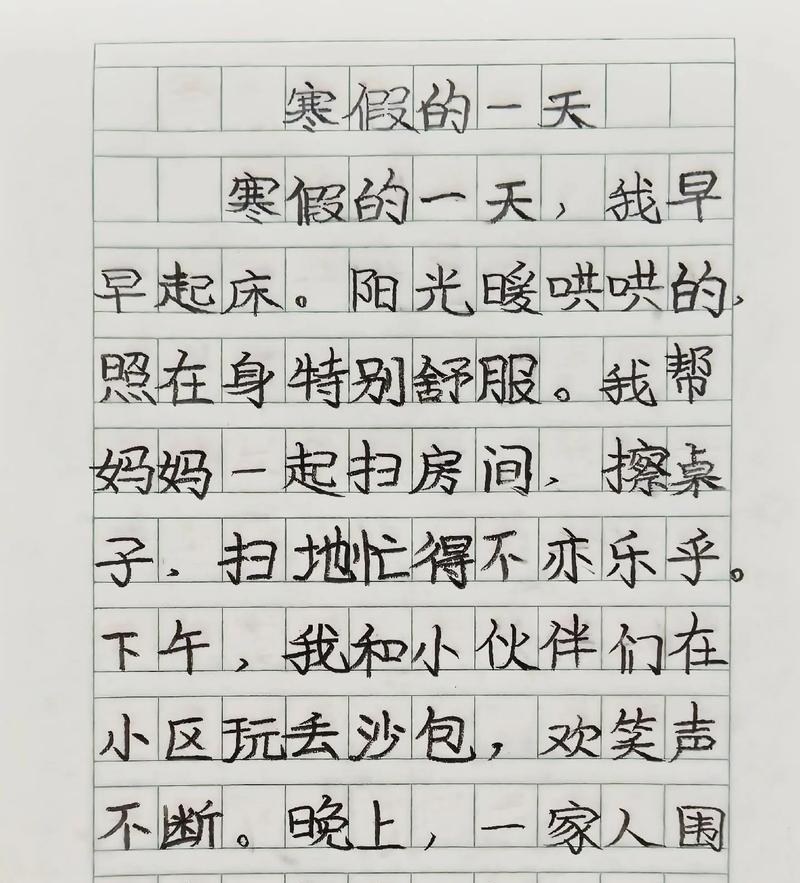 寒假的一天
寒假的一天，我早
早起床。阳光暖哄哄的，
照在身特别舒服。我帮
妈妈一起扫房间、擦桌
子、扫地忙得不亦乐乎。
下午，我和小伙伴们在
小区玩丢沙包，欢笑声
不断。晚上，一家人围